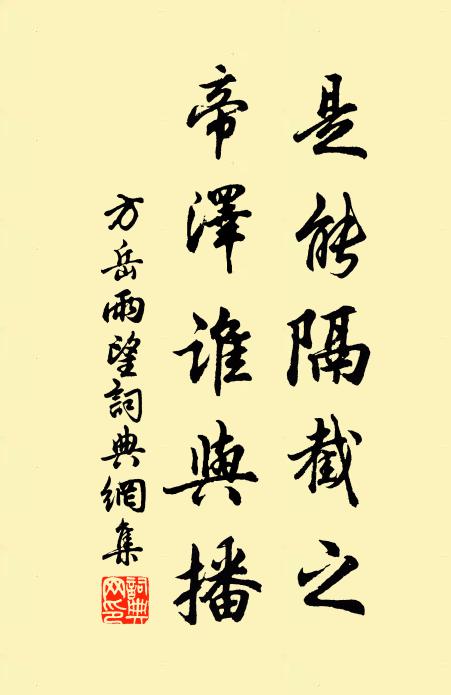 是能隔截之
帝澤誰與播
方岳雨望詞典網集
詞典網印